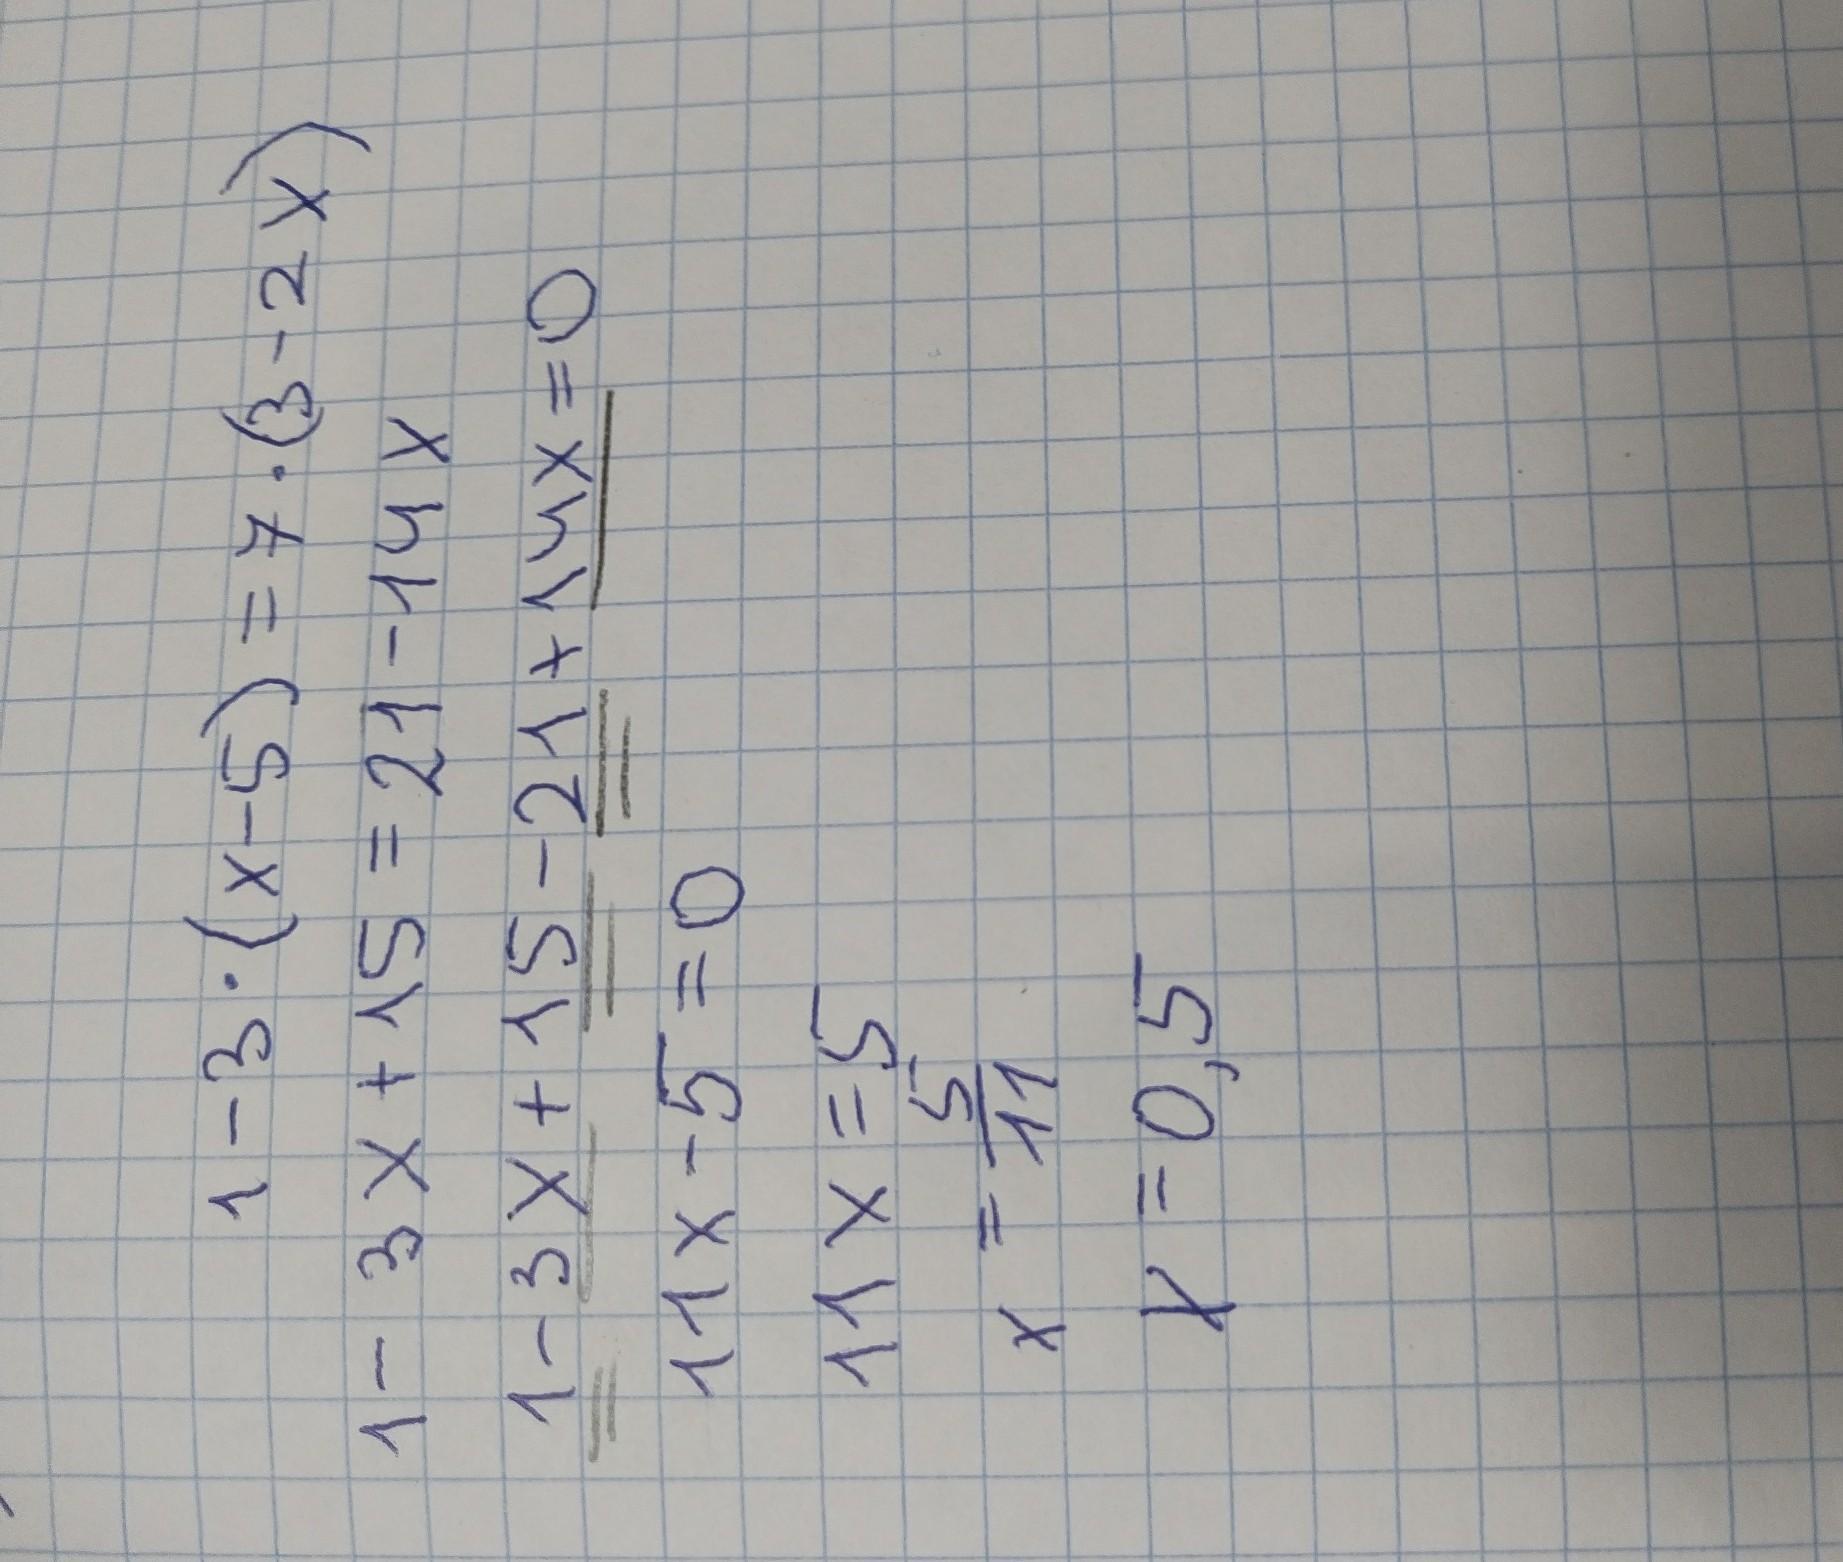 1-3·(x-5)=7·(3-2x)
1-3x+15=21-14x
1-3x+15-21+14x=0
11x-5=0
11x=5
x=5/11
x=0,5